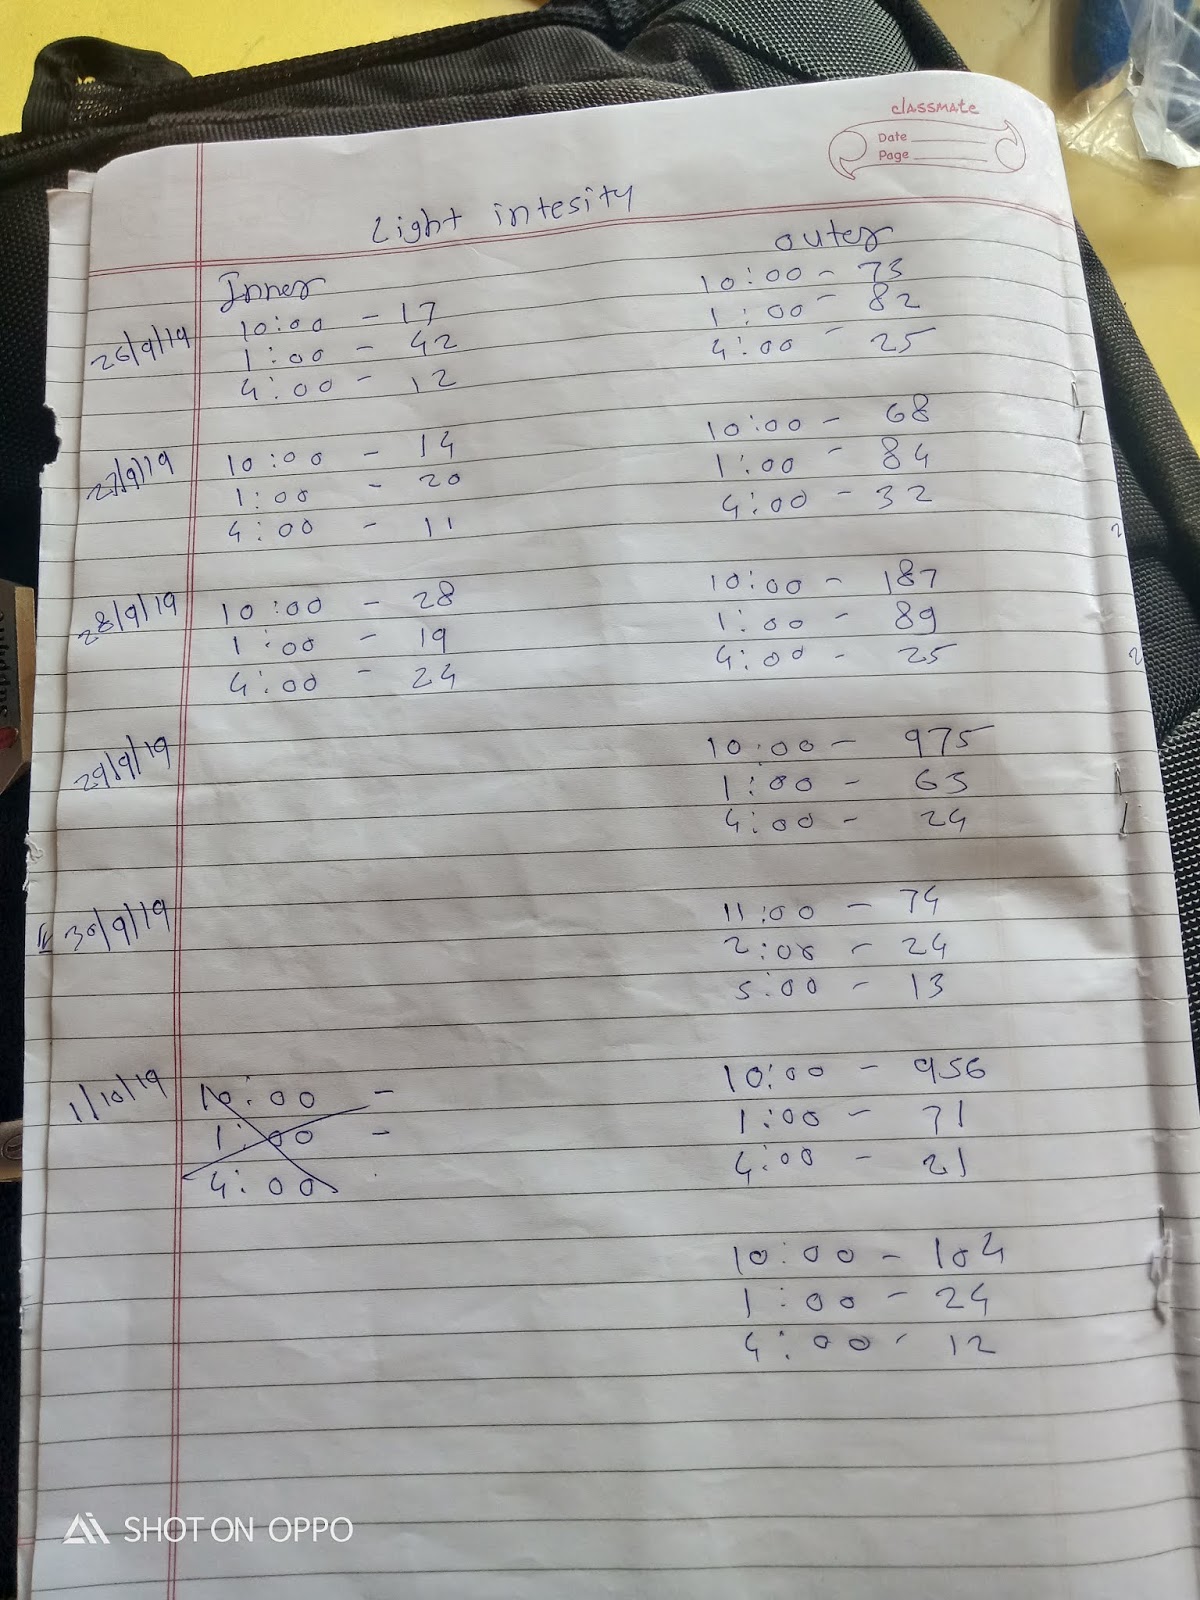 classmate
Date
Page
Light intesity
Inner outer
26/9/19 10:00 - 17 10:00 - 73
1:00 - 42 1:00 - 82
4:00 - 12 4:00 - 25
27/9/19 10:00 - 14 10:00 - 68
1:00 - 20 1:00 - 84
4:00 - 11 4:00 - 32
28/9/19 10:00 - 28 10:00 - 187
1:00 - 19 1:00 - 89
4:00 - 24 4:00 - 25
29/9/19 10:00 - 975
1:00 - 63
4:00 - 24
30/9/19 11:00 - 74
2:00 - 24
5:00 - 13
1/10/19 10:00 - 10:00 - 956
1:00 - 1:00 - 71
4:00 4:00 - 21
10:00 - 104
1:00 - 24
4:00 - 12
SHOT ON OPPO